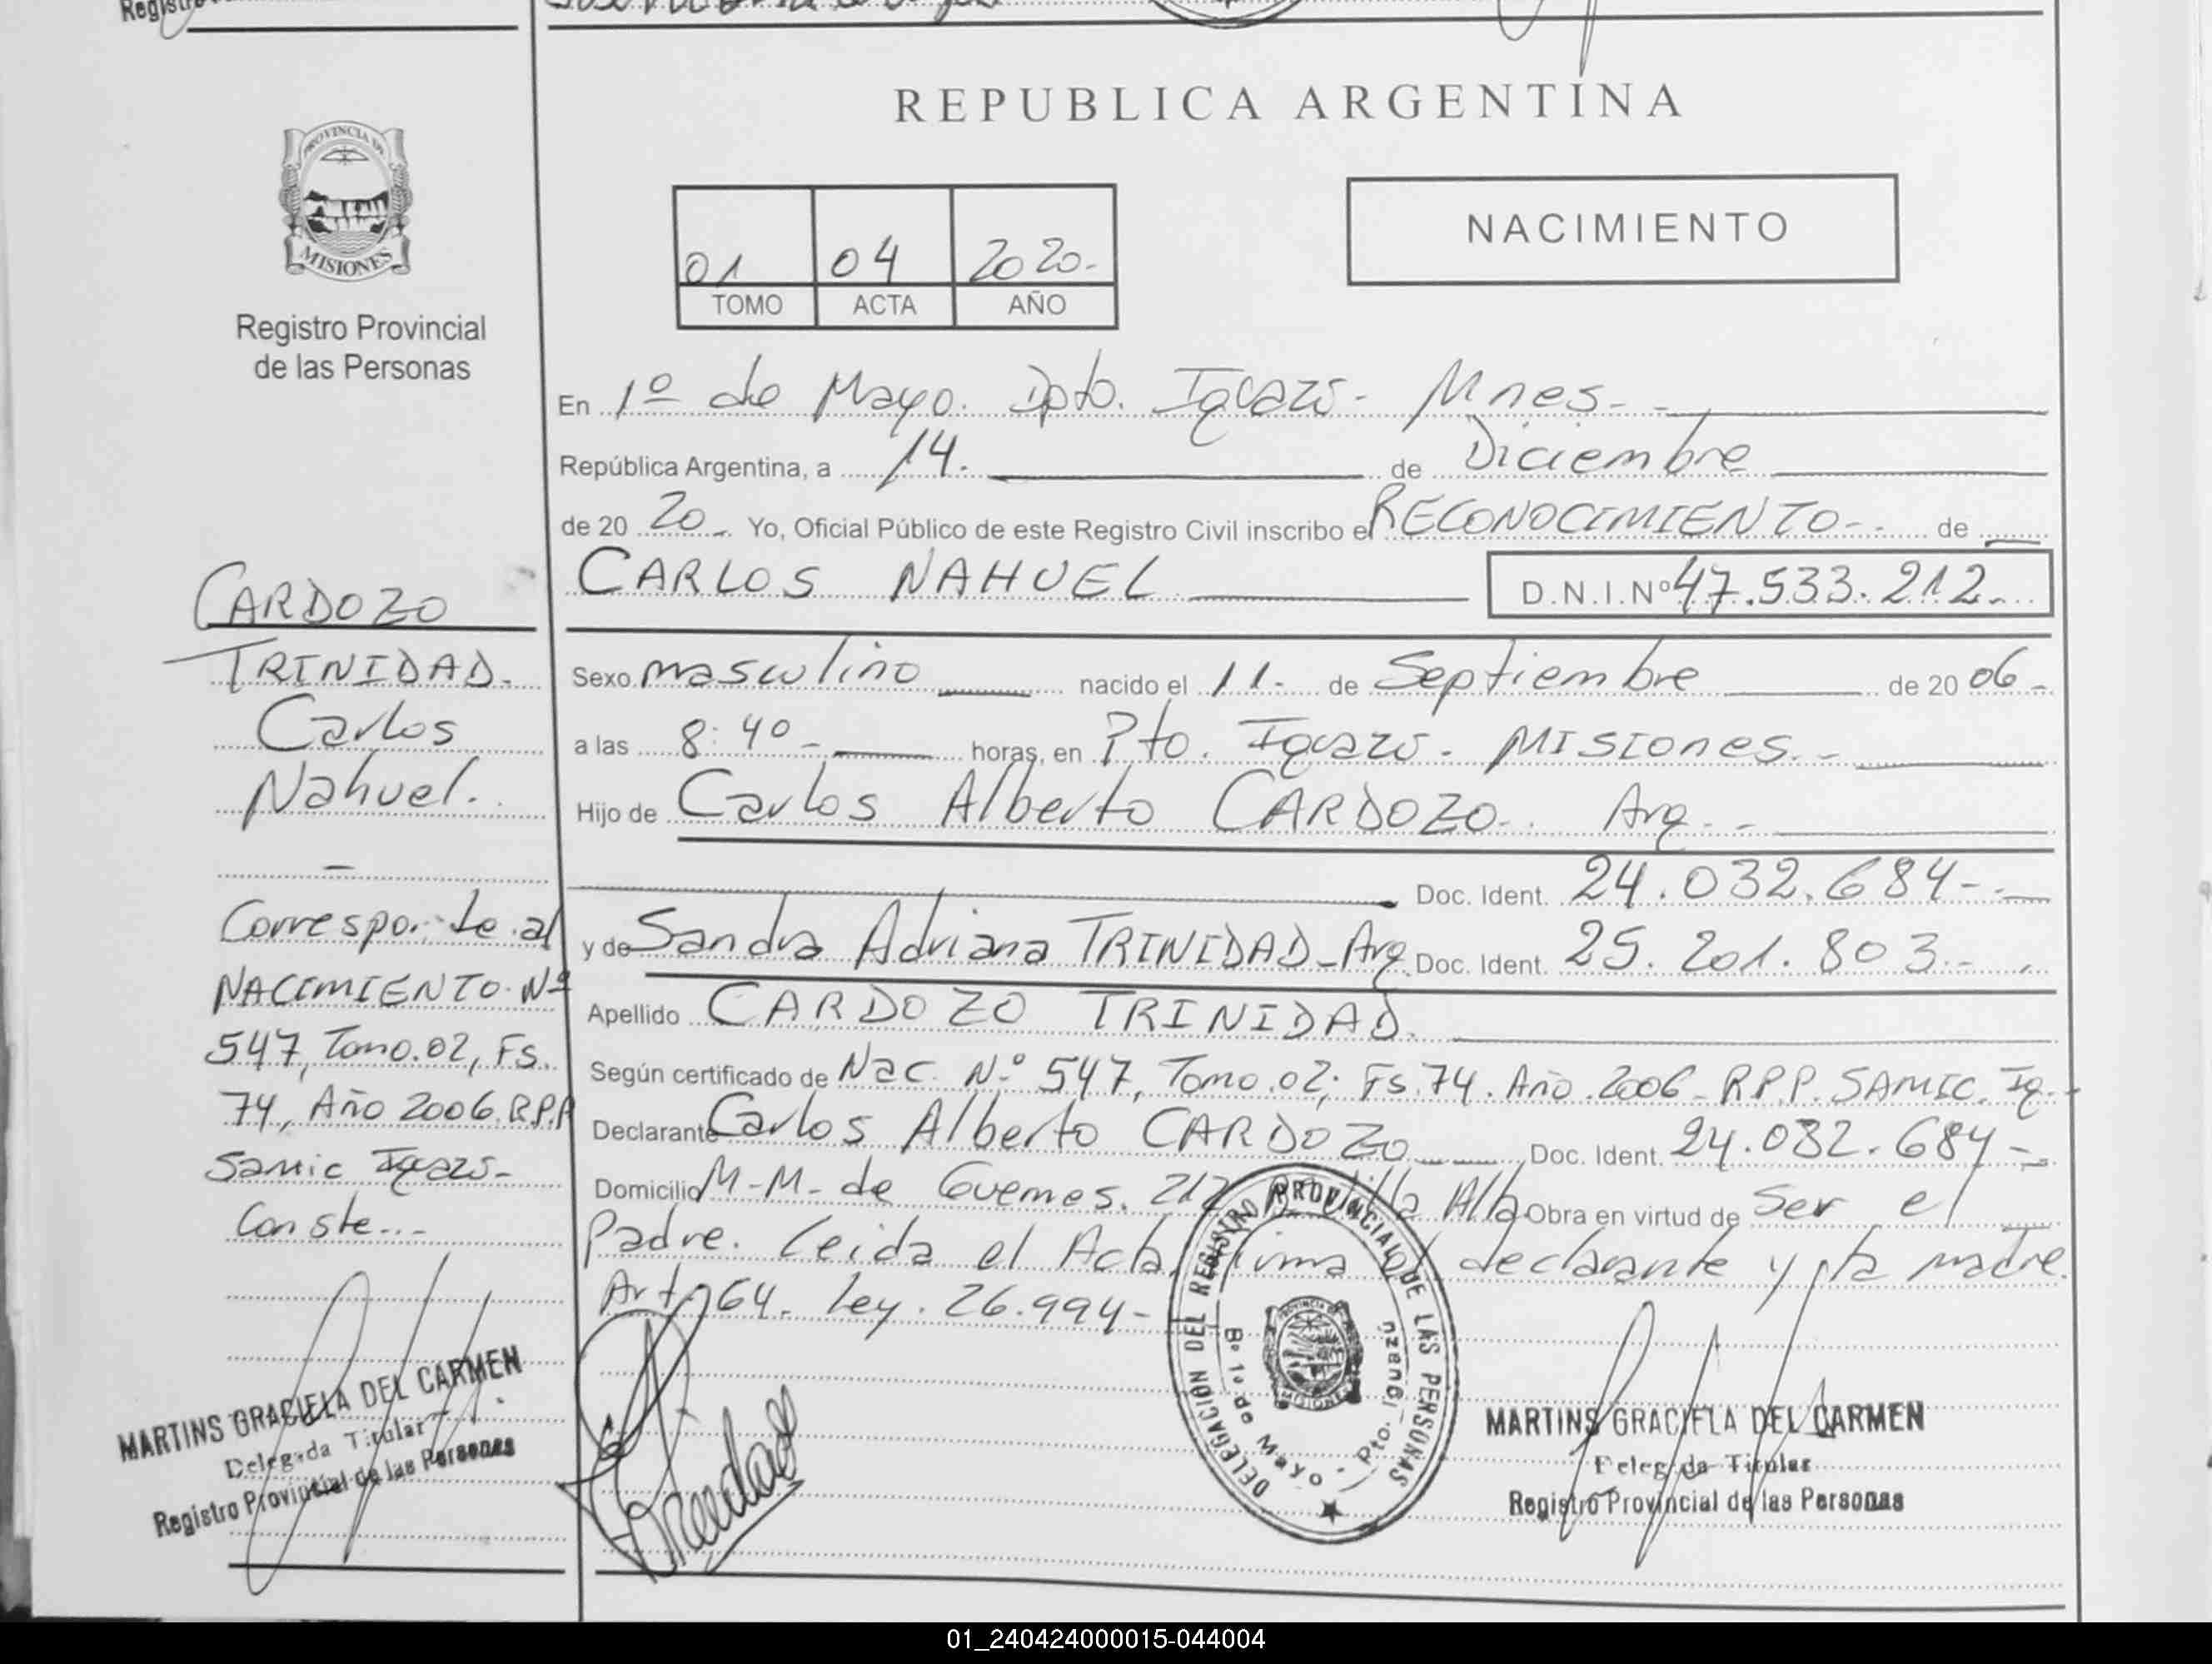 REPUBLICA ARGENTINA
PROVINCIA DE
MISIONES
Registro Provincial
de las Personas
NACIMIENTO
01 04 2020.-
TOMO ACTA AÑO
En 1º de Mayo. Dpto. Iguazú - Mnes.-
República Argentina, a 14. de Diciembre
de 20 20.- Yo, Oficial Público de este Registro Civil inscribo el RECONOCIMIENTO.-. de
CARLOS NAHUEL D.N.I.Nº 47.533.212.-
Sexo masculino nacido el 11. de Septiembre de 20 06.-
a las 8:40.- horas, en Pto. Iguazú - MISIONES.-
Hijo de Carlos Alberto CARDOZO. Arg.-
Doc. Ident. 24.032.684-.
y de Sandra Adriana TRINIDAD-Arg. Doc. Ident. 25.201.803.-
Apellido CARDOZO TRINIDAD.
Según certificado de Nac. Nº 547, Tomo.02; Fs.74. Año.2006-R.P.P. SAMIC. Ig.-
Declarante Carlos Alberto CARDOZO Doc. Ident. 24.032.684-
Domicilio M-M- de Guemes. 212 Villa Alba Obra en virtud de Ser el
Padre. Leida el Acta, firma declarante y la madre.
Art 64. Ley. 26.994-
CARDOZO
TRINIDAD.
Carlos
Nahuel.
-
Correspo. te al
NACIMIENTO. Nº
547, Tomo.02, Fs.
74, Año 2006.R.P.P
Samic Iguazú-
Conste.-.
MARTINS GRACIELA DEL CARMEN
Delegada Titular
Registro Provincial de las Personas
Trinidad
DELEGACION DEL REGISTRO PROVINCIAL DE LAS PERSONAS
Bº 1º de Mayo - Pto. Iguazú
MARTINS GRACIELA DEL CARMEN
Delegada Titular
Registro Provincial de las Personas
01_240424000015-044004